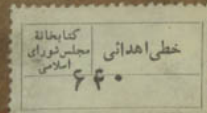 خطی اهدائی
کتابخانهٔ
مجلس شورای
اسلامی
۶۴۰